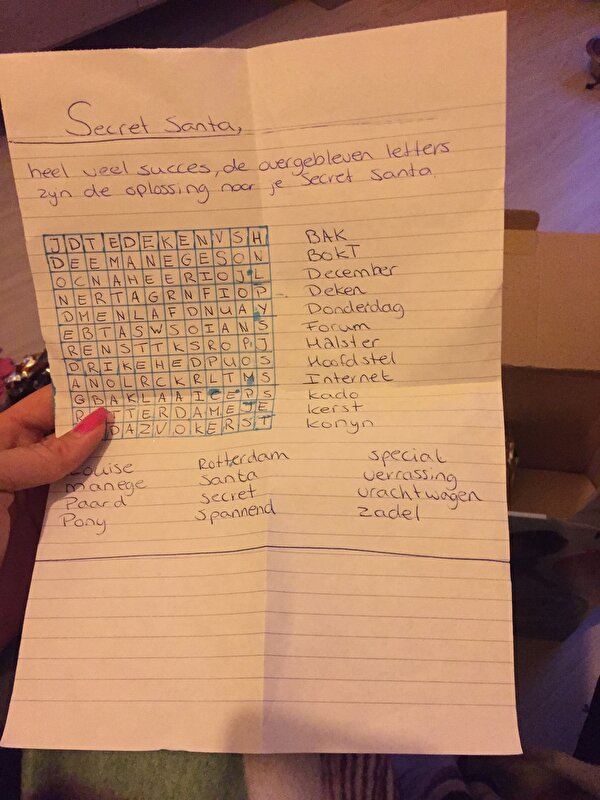 Secret Santa,
heel veel succes, de overgebleven letters
zyn de oplossing naar je Secret Santa.
JDTEDEKENVSH
DEEMANEGESON
OCNAHEERIOJL
NERTAGRNFIOP
DMENLAFDNUAY
EBTASWSOIANS
RENSTTKSROPJ
DRIKEHEDPUOS
ANOLRCKRLTMS
GBAKLAAICEPS
R TTERDAMEJE
DAZVOKERST
BAK
BOKT
December
Deken
Donderdag
Forum
Halster
Hoofdstel
Internet
kado
kerst
konyn
Louise
manege
Paard
Pony
Rotterdam
santa
secret
spannend
special
verrassing
vrachtwagen
zadel